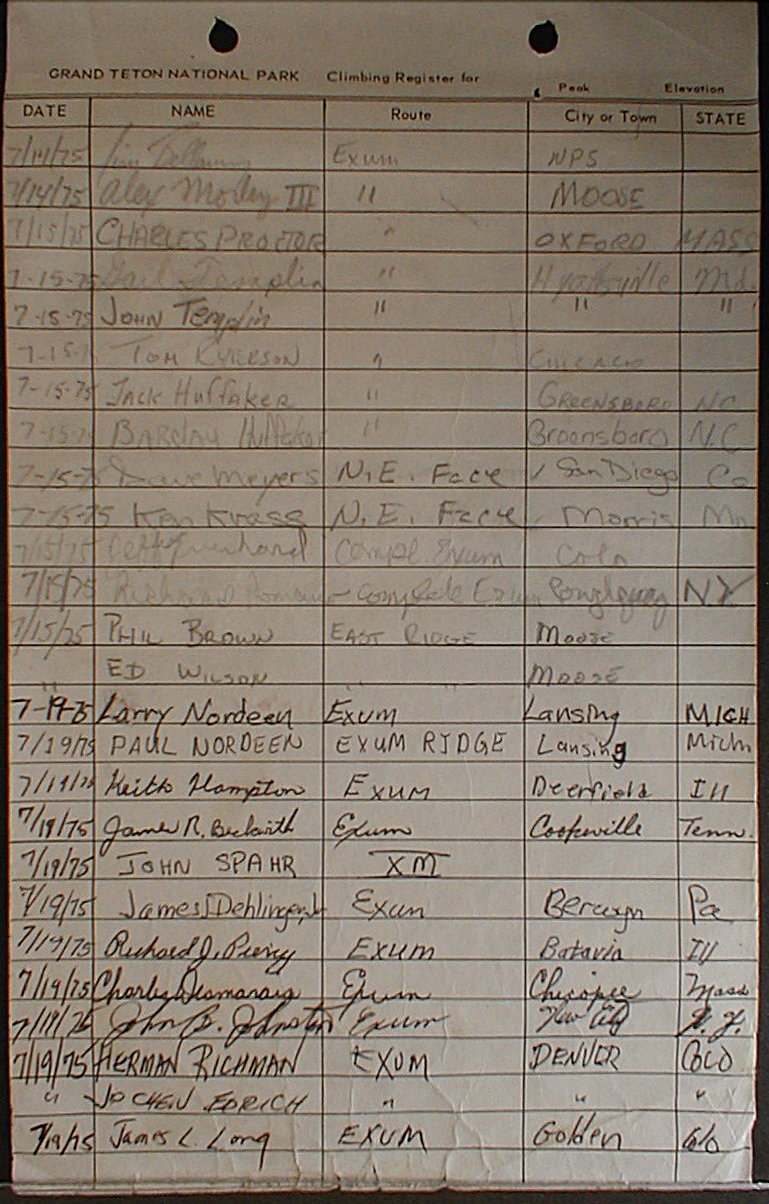 GRAND TETON NATIONAL PARK Climbing Register for Peak Elevation
DATE NAME Route City or Town STATE
7/14/75 Jim Exum NPS
7/14/75 Alex III " MOOSE
7/15/75 CHARLES PROCTOR " OXFORD MASS
7-15-75 Gail Templin " Hyattsville Md.
7-15-75 JOHN Templin " " "
7-15-7 TOM RYERSON " CHICAGO
7-15-75 JACK HuffakER " GREENSBORO NC
7-15-75 BARCLAY Huffaker " Greensboro N.C
7-15-75 Dave Meyers N.E. Face San Diego Ca
7-15-75 Ken Krass N.E. Face Morris Mn
7/15/75 Compl. Exum Colo
7/15/75 Richard complete Exum NY
7/15/75 PHIL BROWN EAST RIDGE MOOSE
" ED WILSON " " MOOSE
7-19-75 Larry Nordeen Exum Lansing MICH
7/19/75 PAUL NORDEEN EXUM RIDGE Lansing Mich
7/19/75 Keith Hampton EXUM Deerfield Ill
7/19/75 James R. Beckwith Exum Cookeville Tenn.
7/19/75 JOHN SPAHR XM
7/19/75 James J Dehlinger, Jr Exum Berwyn Pa
7/19/75 Richard J. Exum Batavia Ill
7/19/75 Charley Desmarais Exum Chicopee Mass
7/19/75 John B. Johnston Exum New N.Y.
7/19/75 HERMAN RICHMAN EXUM DENVER COLO
" JOCHEN EDRICH " " "
7/19/75 James L. Long EXUM Golden Colo